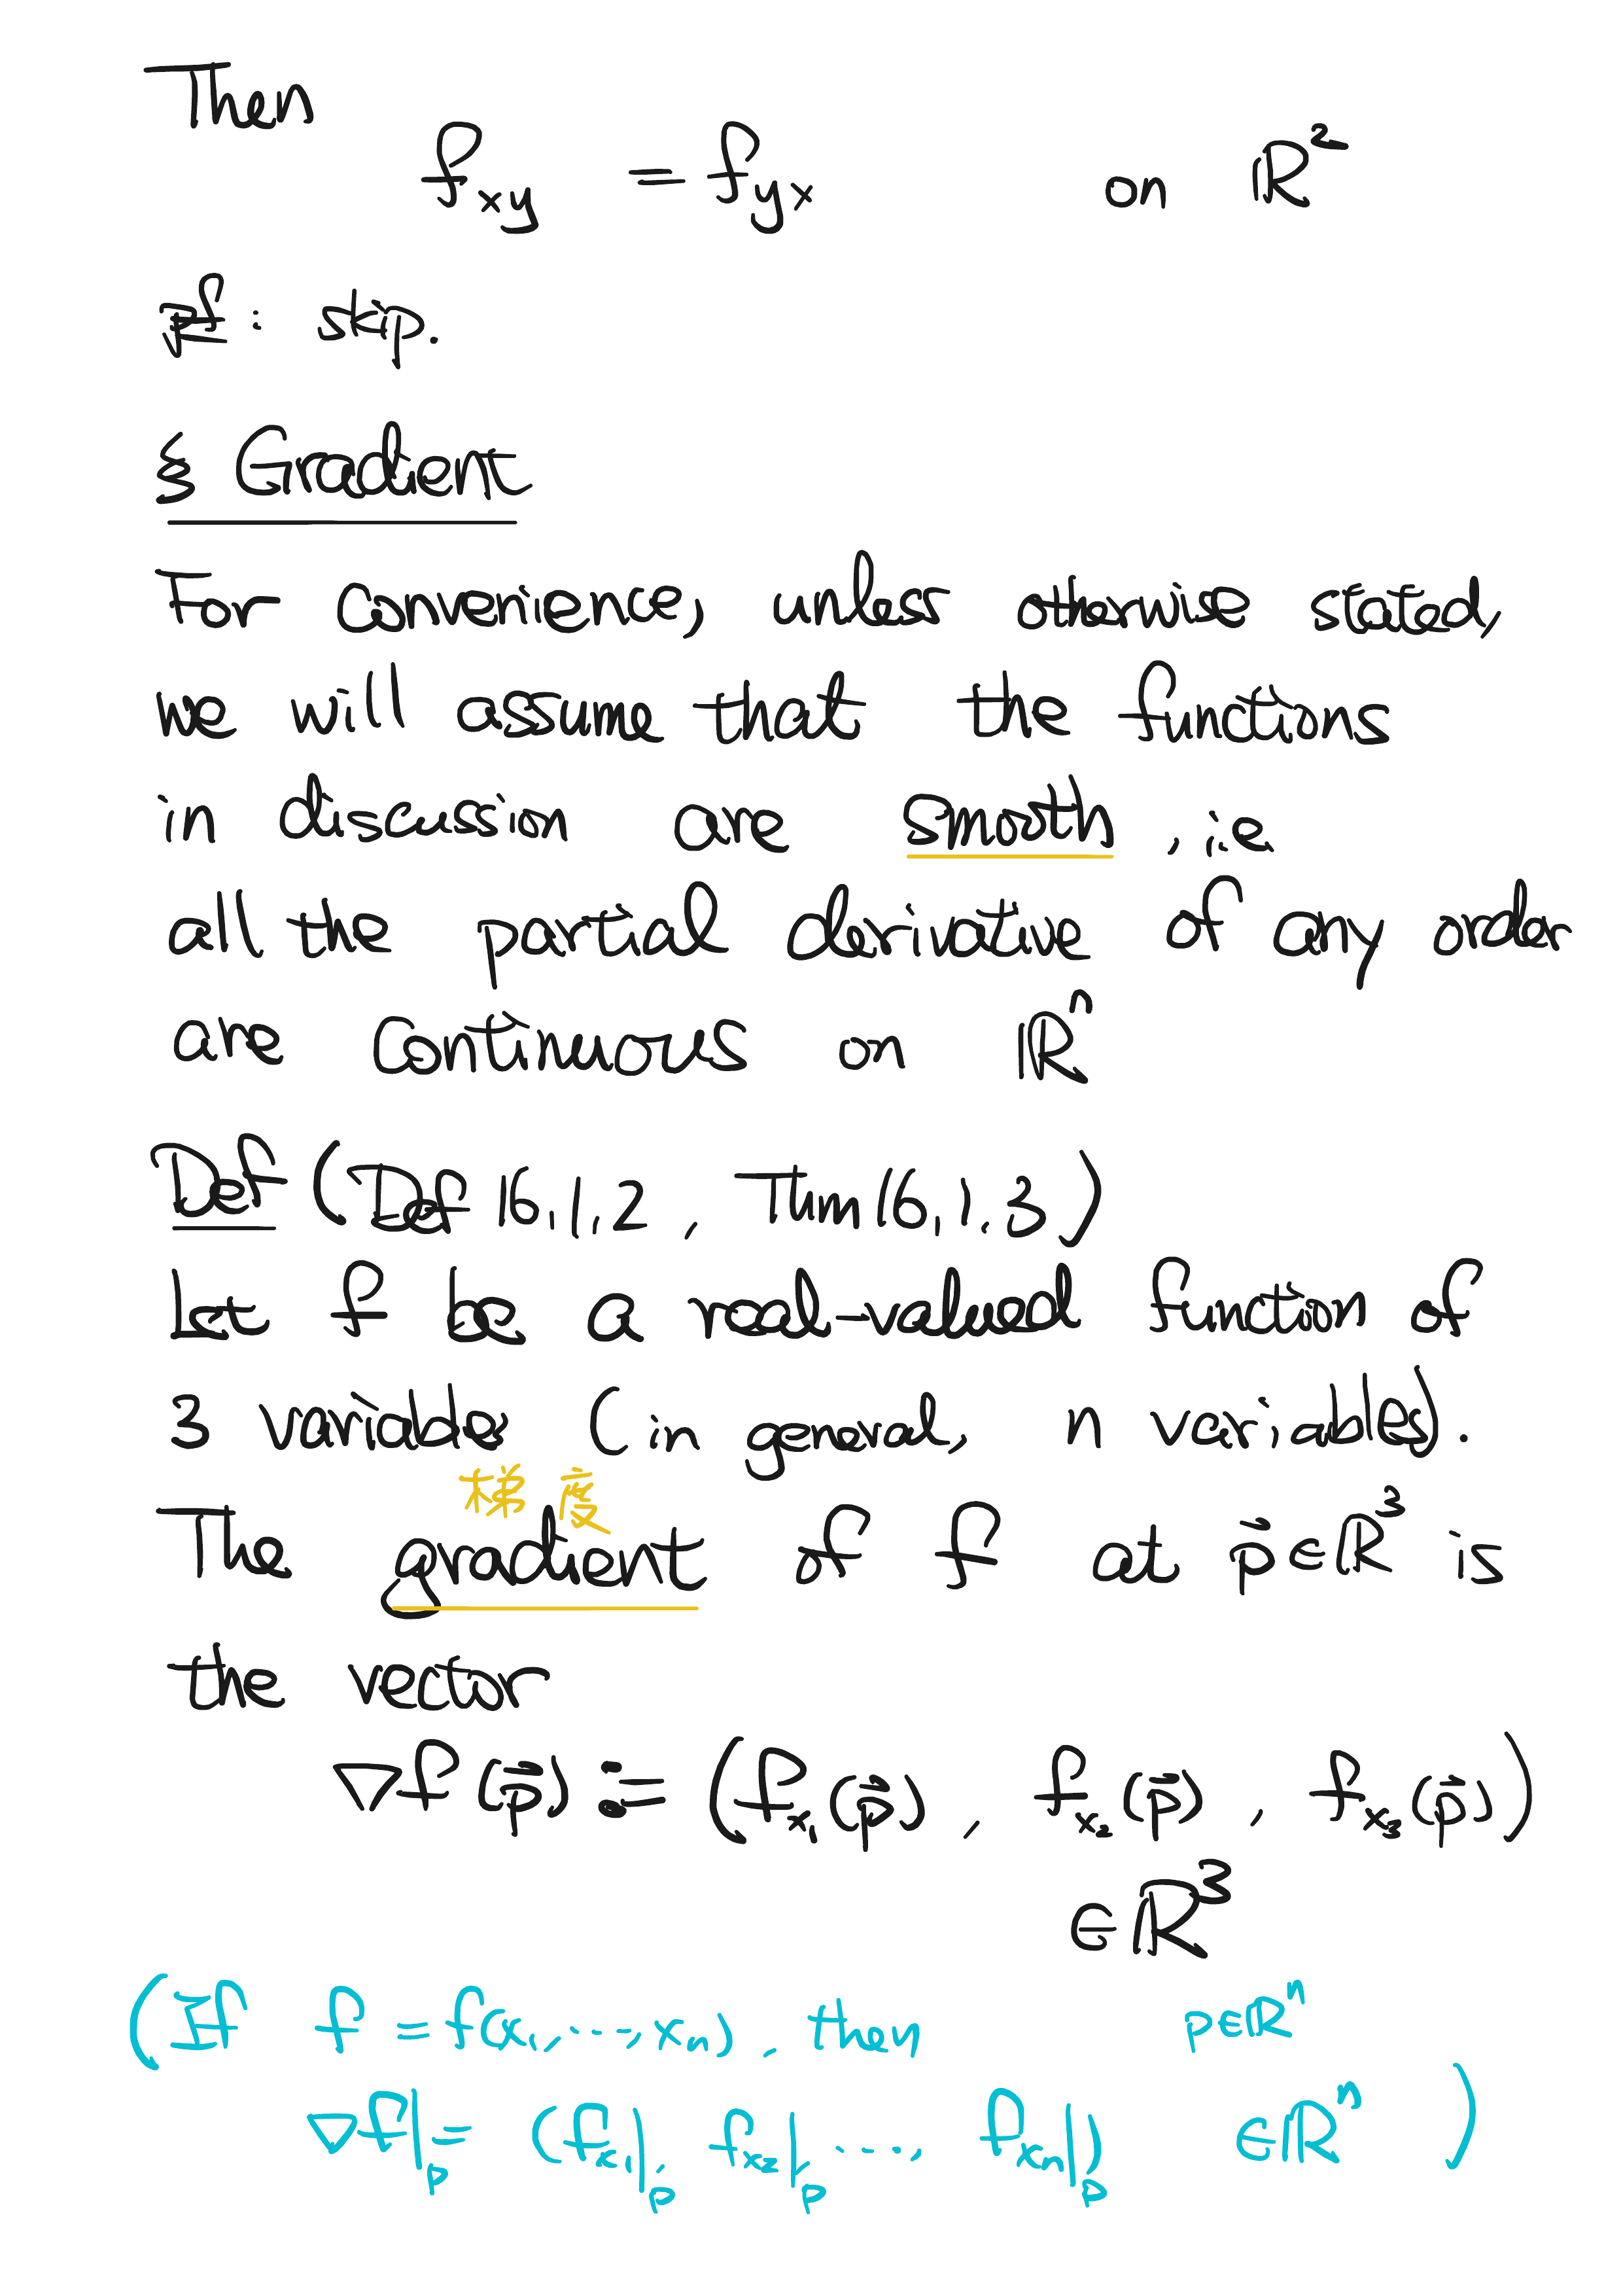 Then
f_xy = f_yx on ℝ²
pf : skip.
§ Gradient
For convenience, unless otherwise stated,
we will assume that the functions
in discussion are smooth , i.e
all the partial derivative of any order
are continuous on ℝⁿ
Def (Def 16.1.2 , Thm 16.1.3)
Let f be a real-valued function of
3 variables (in general, n variables).
梯度
The gradient of f at p⃗ ∈ ℝ³ is
the vector
∇f(p⃗) := (f_x₁(p⃗) , f_x₂(p⃗) , f_x₃(p⃗))
∈ ℝ³
(If f = f(x₁, ⋯, xₙ), then p ∈ ℝⁿ
∇f|_p = (f_x₁|_p, f_x₂|_p, ⋯, f_xₙ|_p) ∈ ℝⁿ )